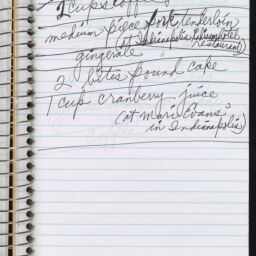 2 cups coffee
medium piece pork tenderloin
(at Indianapolis Hilton Hotel
Restaurant)
gingerale
2 bites pound cake
1 cup cranberry juice
(at Mari Evans'
in Indianapolis)